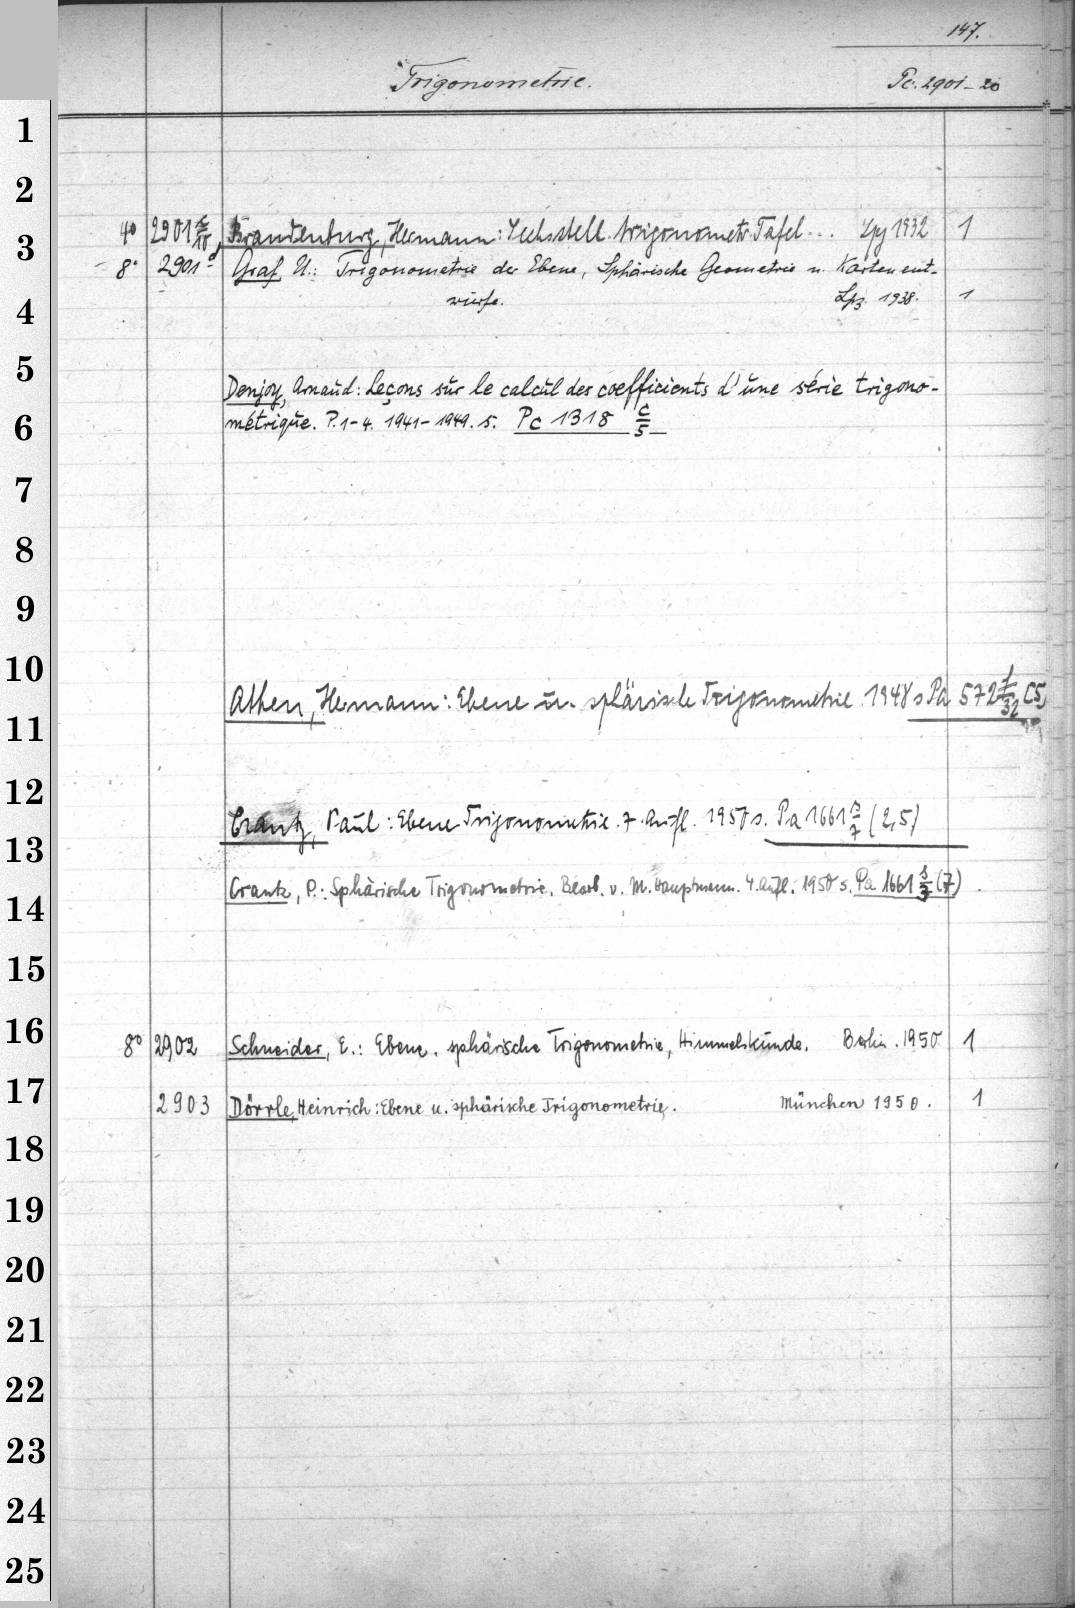 147.
Trigonometrie. Pc. 2901-20
1
2
4° 2901 Brandenburg, Hermann: Sechsstell. trigonometr. Tafel ... Lpz 1932 1
3
8° 2901 d Graf U.: Trigonometrie der Ebene, Sphärische Geometrie u. Kartenent-
würfe. Lpz. 1938. 1
4
5
Denjoy, Arnaud: Leçons sur le calcul des coefficients d'une série trigono-
métrique. P. 1-4. 1941-1949. s. Pc 1318 c/5
6
7
8
9
10
Athen, Hermann: Ebene u. sphärische Trigonometrie. 1948 s Pa 572 f/32 (5)
11
12
Crantz, Paul: Ebene Trigonometrie. 7. Aufl. 1950 s. Pa 1661 s/7 (2,5)
13
Crantz, P.: Sphärische Trigonometrie. Bearb. v. M. Hauptmann. 4. Aufl. 1950 s. Pa 1661 s/7 (7)
14
15
16
8° 2902 Schneider, E.: Ebene. sphärische Trigonometrie, Himmelskunde. Berlin. 1950. 1
17
2903 Dörrie, Heinrich: Ebene u. sphärische Trigonometrie. München 1950. 1
18
19
20
21
22
23
24
25